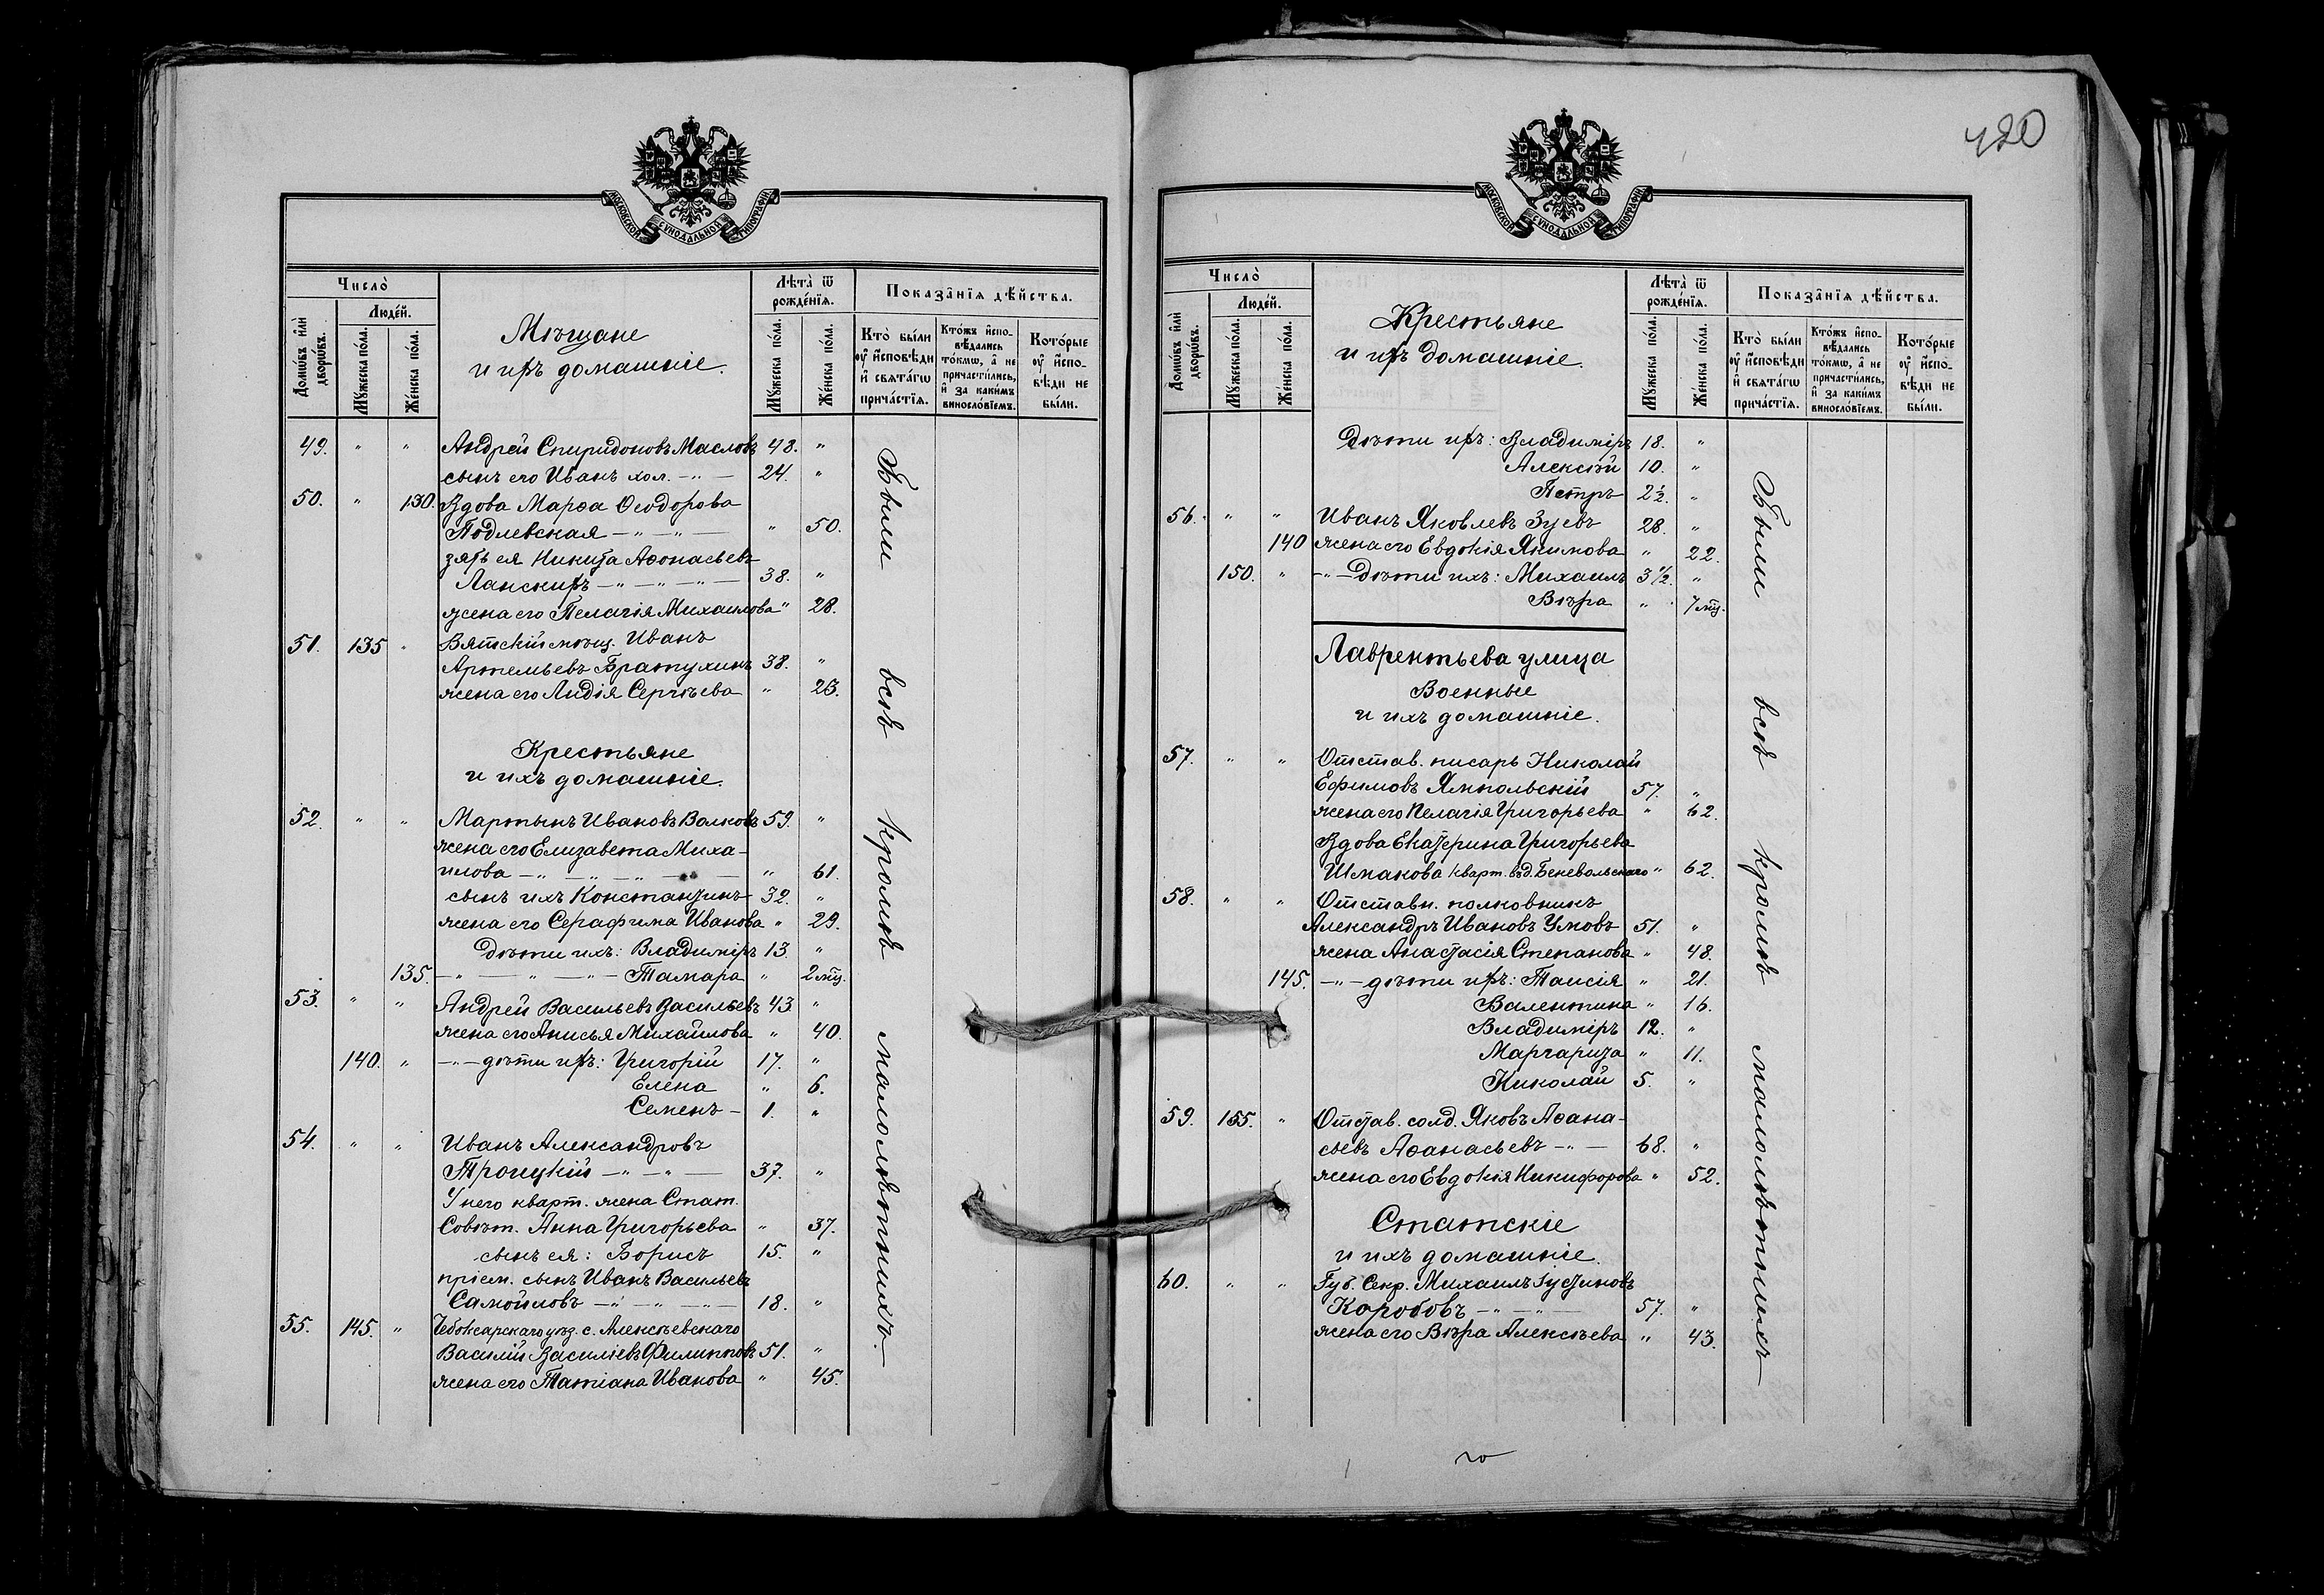 МОСКОВСКОЙ СѴНОДАЛЬНОЙ ТИПОГРАФІИ
Число̀
Домѡ́въ и҆лѝ дворѡ́въ.
Люде́й.
Мꙋ́жеска по́ла.
Же́нска по́ла.
Мѣщане
и ихъ домашніе.
Лѣта̀ ѿ рожде́нїѧ.
Мꙋ́жеска по́ла.
Же́нска по́ла.
Показа̑нїѧ дѣ́йства.
Кто̀ бы́ли оу҆ и҆сповѣ́ди и҆ свѧта́гѡ прича́стїѧ.
Кто́жъ и҆спо-вѣ́дались то́кмѡ, а҆ не причасти́лись, и҆ за каки́мъ виносло́вїемъ.
Кото́рые оу҆ и҆спо-вѣ́ди не бы́ли.
49. " " Андрей Спиридоновъ Масловъ 48. "
сынъ его Иванъ хол. -"- 24. "
50. " 130. Вдова Марѳа Ѳеодорова
Подлевская -"-"- " 50.
зять ея Никита Аѳонасьевъ
Ланскихъ -"-"-"- 38. "
жена его Пелагія Михаилова " 28.
51. 135 " Вятскій мѣщ. Иванъ
Артемьевъ Братухинъ 38. "
жена его Лидія Сергѣева " 23.
Крестьяне
и ихъ домашніе.
52. " " Мартынъ Ивановъ Волковъ 59. "
жена его Елизавета Миха-
илова -"-"-"- " 61.
сынъ ихъ Константинъ 32. "
жена его Серафима Иванова " 29.
дѣти ихъ: Владиміръ 13. "
135. -"-"-"- Тамара " 2 мц.
53. " " Андрей Васильевъ Васильевъ 43 "
жена его Анисья Михайлова " 40.
140. " -"- дѣти ихъ: Григорій 17. "
Елена " 6.
Семенъ - 1. "
54. " " Иванъ Александровъ
Троицкій -"-"- 37. "
У него кварт. жена Стат.
Совѣт. Анна Григорьева " 37.
сынъ ея: Борисъ 15. "
пріем. сынъ Иванъ Васильевъ
Самойловъ -"-"-"- 18. "
55. 145. " Чебоксарскаго уѣз. с. Алексѣевскаго
Василій Василіевъ Филипповъ 51. "
жена его Татіана Иванова " 45.
Были всѣ кромѣ малолѣтнихъ.
420
МОСКОВСКОЙ СѴНОДАЛЬНОЙ ТИПОГРАФІИ
Число̀
Домѡ́въ и҆лѝ дворѡ́въ.
Люде́й.
Мꙋ́жеска по́ла.
Же́нска по́ла.
Крестьяне
и ихъ домашніе.
Лѣта̀ ѿ рожде́нїѧ.
Мꙋ́жеска по́ла.
Же́нска по́ла.
Показа̑нїѧ дѣ́йства.
Кто̀ бы́ли оу҆ и҆сповѣ́ди и҆ свѧта́гѡ прича́стїѧ.
Кто́жъ и҆спо-вѣ́дались то́кмѡ, а҆ не причасти́лись, и҆ за каки́мъ виносло́вїемъ.
Кото́рые оу҆ и҆спо-вѣ́ди не бы́ли.
Дѣти ихъ: Владиміръ 18. "
Алексѣй 10. "
Петръ 2½. "
56. " " Иванъ Яковлевъ Зуевъ 28. "
140 жена его Евдокія Якимова " 22.
150. " -"- Дѣти ихъ: Михаилъ 3½. "
Вѣра " 7 мц.
Лаврентьева улица
Военные
и ихъ домашніе.
57. " " Отстав. писарь Николай
Ефимовъ Ямпольскій 57. "
жена его Пелагія Григорьева " 62.
Вдова Екатерина Григорьева
Шмакова кварт. въ д. Беневольскаго " 62.
58. " " Отставн. полковникъ
Александръ Ивановъ Умовъ 51. "
жена Анастасія Степанова " 48.
145. -"- дѣти ихъ: Таисія " 21.
Валентина " 16.
Владиміръ 12. "
Маргарита " 11.
Николай 5. "
59. 155. " Отстав. солд. Яковъ Аѳана-
сьевъ Аѳанасьевъ -"- 68. "
жена его Евдокія Никифорова " 52.
Статскіе
и ихъ домашніе.
60. " " Губ. Секр. Михаилъ Густиновъ
Коробовъ -"-"- 57. "
жена его Вѣра Алексѣева " 43.
Были всѣ кромѣ малолѣтнихъ